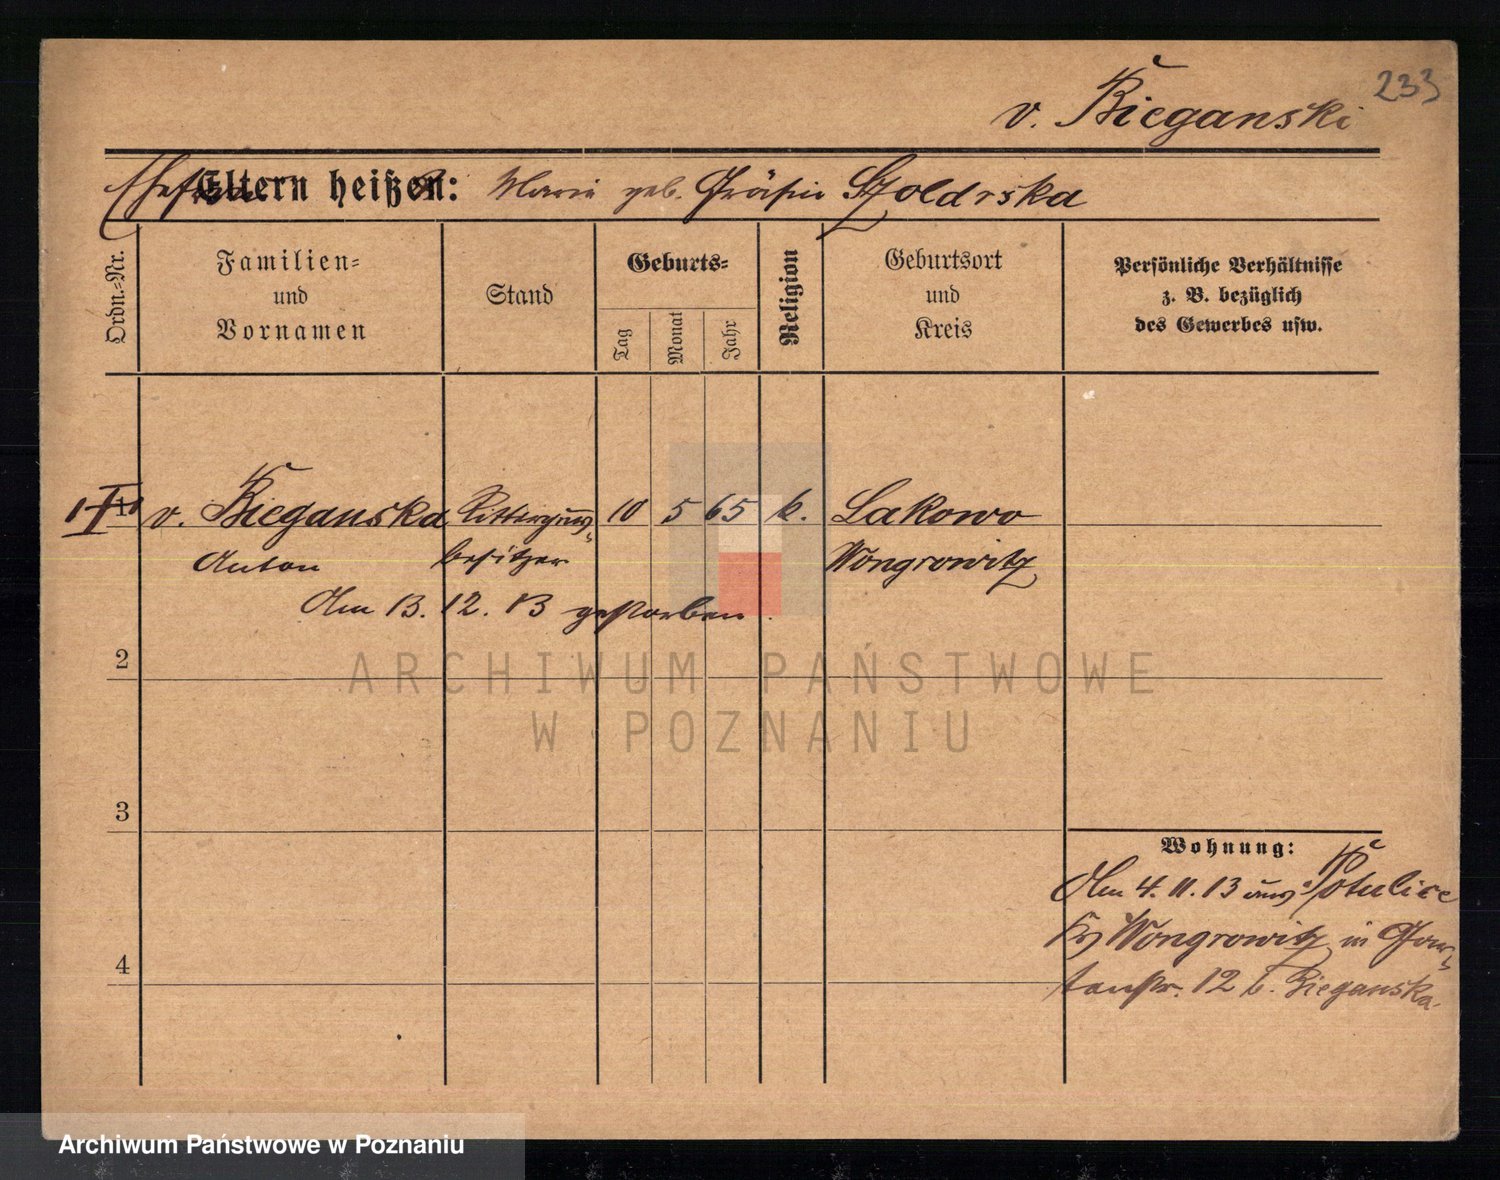 233
v. Bieganski
Eltern heißen: Maria geb. Gräfin Szoldrska
Ordn.-Nr.
Familien- und Vornamen
Stand
Geburts-
Tag
Monat
Jahr
Religion
Geburtsort und Kreis
Persönliche Verhältnisse z. B. bezüglich des Gewerbes usw.
v. Bieganska Ritterguts- 10 5 65 k. Lakowo
Anton besitzer Wongrowitz
Am 13. 12. 13 gestorben.
2
3
4
Wohnung:
Am 4. 11. 13 aus Potulice
Krs Wongrowitz in Gar-
tenstr. 12 b. Bieganska.
ARCHIWUM PAŃSTWOWE
W POZNANIU
Archiwum Państwowe w Poznaniu